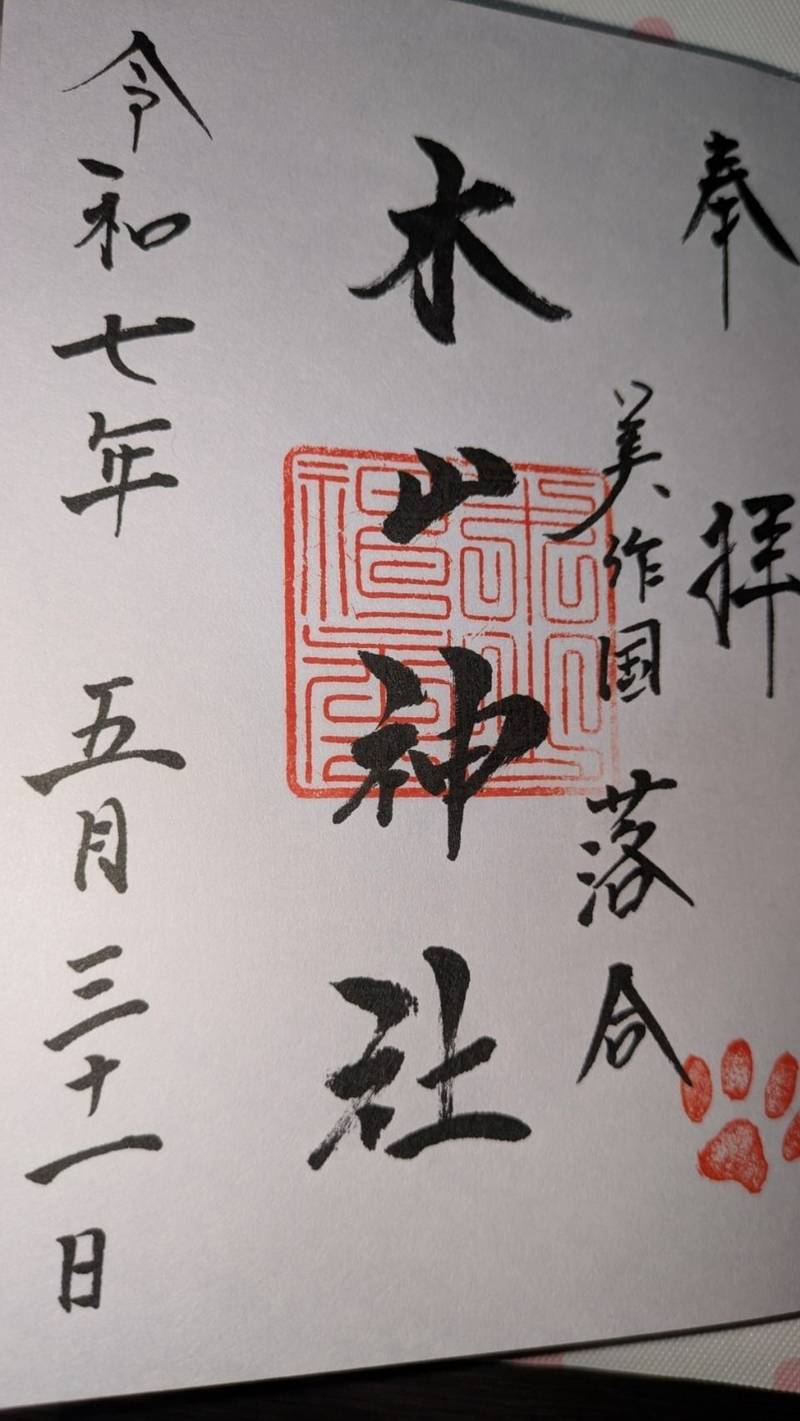 奉拝
美作国落合
木山神社
令和七年五月三十一日